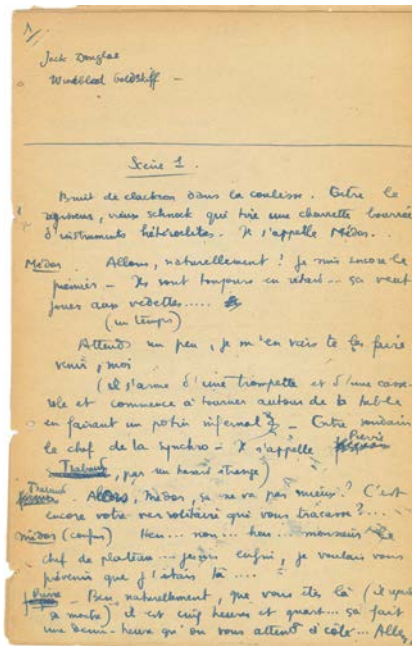 1
Jack Douglas
Windblood Goldstiff —
Scène 1.
Bruit de clackson dans la coulisse. Entre le
vieux schnock qui tire une charrette bourrée
d'instruments hétéroclites. Il s'appelle Médos.
Médos Allons, naturellement ! je suis encore le
premier — Ils sont toujours en retard... ça veut
jouer aux vedettes.....
(un temps)
Attends un peu, je m'en vais te les faire
venir, moi
(il s'arme d'une trompette et d'une casse-
role et commence à tourner autour de la table
en faisant un potin infernal — Entre soudain
le chef de la synchro — Il s'appelle Pierre
Trabaud, par un hasard étrange)
Trabaud Allons, Médos, ça ne va pas mieux ? C'est
encore votre ver solitaire qui vous tracasse ?....
Médos (confus) Heu... non... heu... monsieur le
chef de plateau... enfin, je voulais vous
prévenir que j'étais là....
Pierre — Ben, naturellement, que vous êtes là (il
sa montre) il est cinq heures et quart... ça fait
une demi-heure qu'on vous attend à côté... Allez,